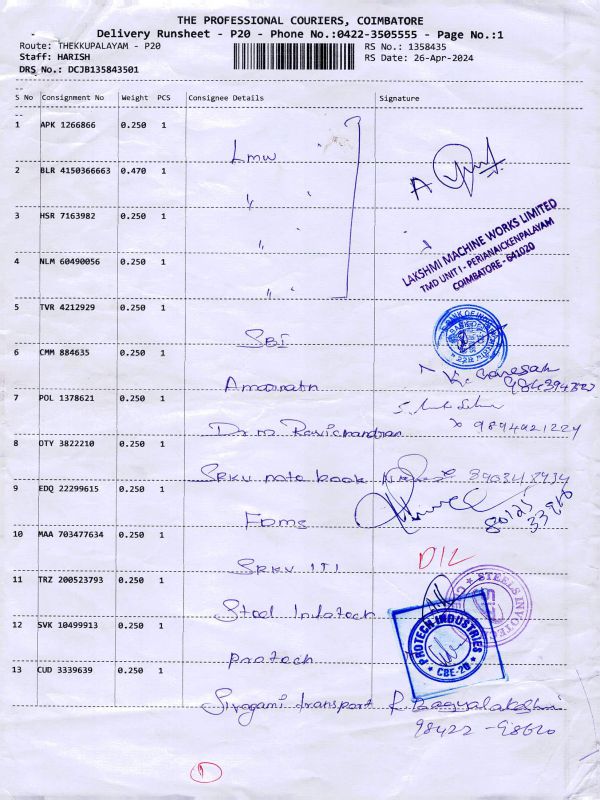 THE PROFESSIONAL COURIERS, COIMBATORE
Delivery Runsheet - P20 - Phone No.:0422-3505555 - Page No.:1
Route: THEKKUPALAYAM - P20 RS No.: 1358435
Staff: HARISH RS Date: 26-Apr-2024
DRS No.: DCJB135843501
S No Consignment No Weight PCS Consignee Details Signature
1 APK 1266866 0.250 1
Lmw
2 BLR 4150366663 0.470 1
" A
3 HSR 7163982 0.250 1
"
LAKSHMI MACHINE WORKS LIMITED
TMD UNIT I - PERIANAICKENPALAYAM
COIMBATORE - 641020
4 NLM 60490056 0.250 1
"
5 TVR 4212929 0.250 1
SBI
6 CMM 884635 0.250 1
Amarnatn K. Ganesan
7 POL 1378621 0.250 1
Dr. M. Ravichandran 9894921224
8 OTY 3822210 0.250 1
SRKV note book
9 EDQ 22299615 0.250 1
Fdms 80125
10 MAA 703477634 0.250 1
SRKV ITI D/L
11 TRZ 200523793 0.250 1
Steel Infotech STEELS INFOTEC
12 SVK 10499913 0.250 1
Protech PROTECH INDUSTRIES
CBE-20
13 CUD 3339639 0.250 1
Sivagami transport R. Bagyalakshmi
98422 - 98620
1